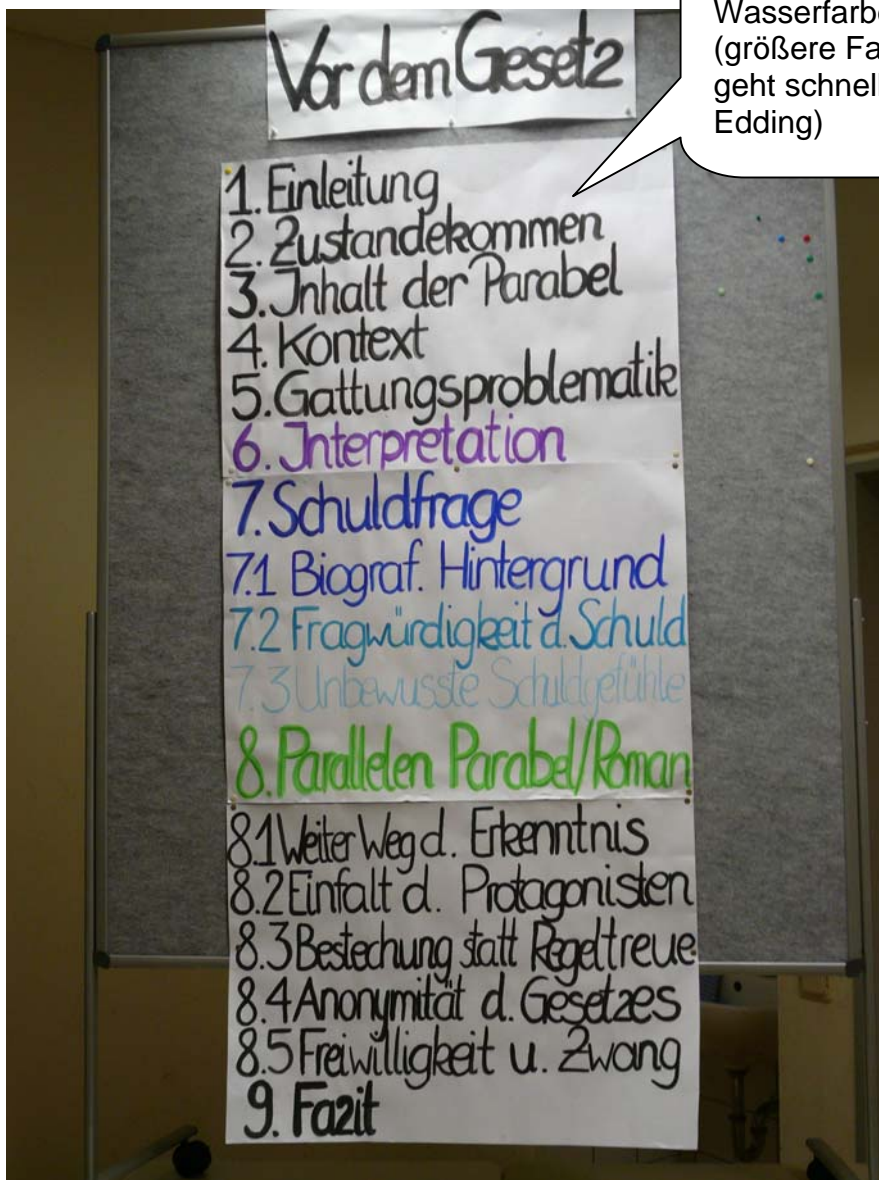 Vor dem Gesetz
Wasserfarbe
(größere Fa
geht schnell
Edding)
1. Einleitung
2. Zustandekommen
3. Inhalt der Parabel
4. Kontext
5. Gattungsproblematik
6. Interpretation
7. Schuldfrage
7.1 Biograf. Hintergrund
7.2 Fragwürdigkeit d. Schuld
7.3 Unbewusste Schuldgefühle
8. Parallelen Parabel/Roman
8.1 Weiter Weg d. Erkenntnis
8.2 Einfalt d. Protagonisten
8.3 Bestechung statt Regeltreue
8.4 Anonymität d. Gesetzes
8.5 Freiwilligkeit u. Zwang
9. Fazit